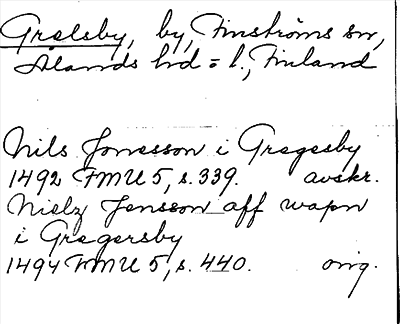 Grelsby, by, Finströms sn,
Ålands hd = l., Finland
Nils Jonsson i Gregesby
1492 FMU 5, s. 339. avskr.
Nielz Jensson aff wapn
i Gregersby
1494 FMU 5, s. 440. orig.